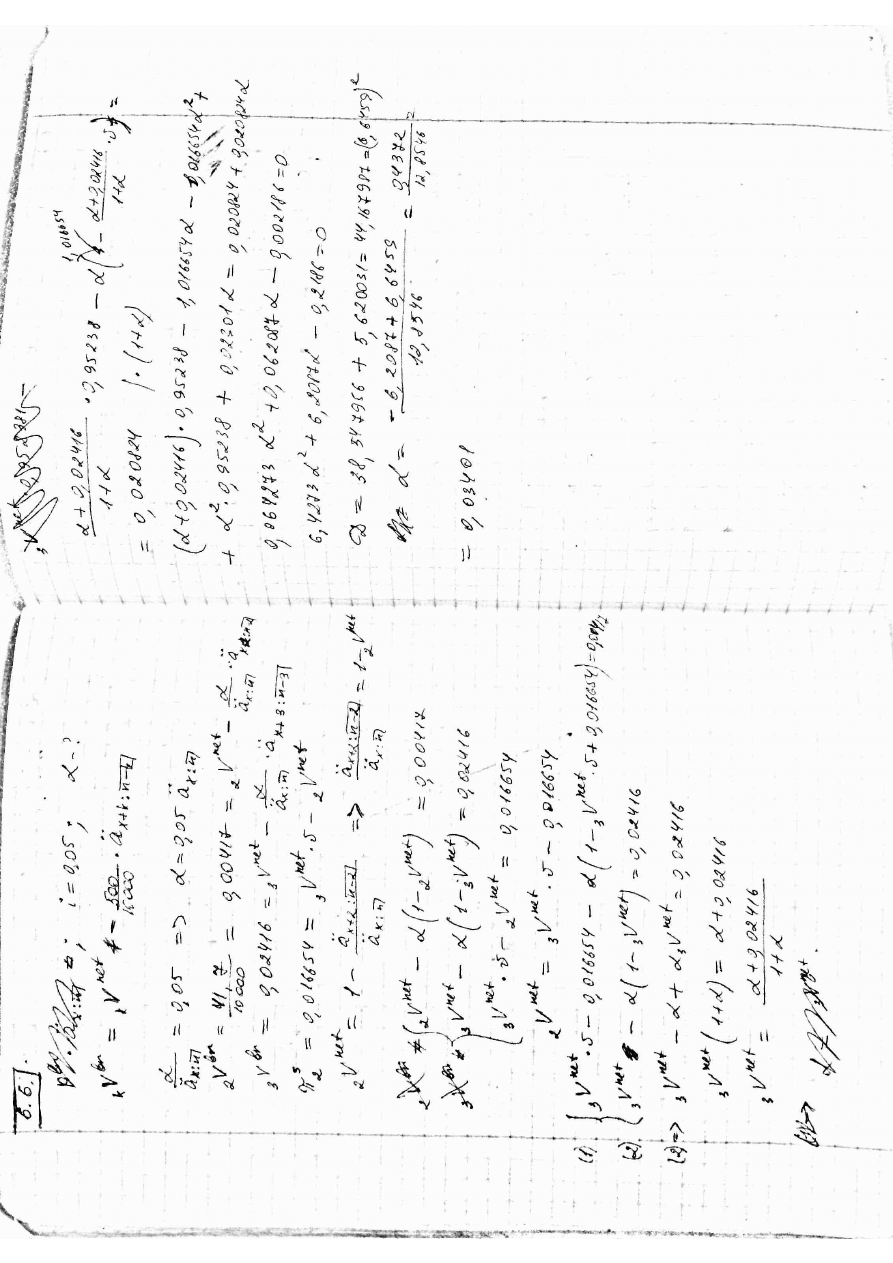 6.6.
i=0,05; α-?
ₖV^бр = ₖV^net - 500/10000 · ä_{x+k:n-k}
α/ä_{x:n} = 0,05 => α = 0,05 ä_{x:n}
₂V^бр = 41,7/10000 = 0,00417 = ₂V^net - α/ä_{x:n} · ä_{x+2:n-2}
₃V^бр = 0,02416 = ₃V^net - α/ä_{x:n} · ä_{x+3:n-3}
π₂^s = 0,016654 = ₃V^net · v - ₂V^net
₂V^net = 1 - ä_{x+2:n-2}/ä_{x:n} => ä_{x+2:n-2}/ä_{x:n} = 1-₂V^net
{₂V^net - α(1-₂V^net) = 0,00417
{₃V^net - α(1-₃V^net) = 0,02416
{₃V^net · v - ₂V^net = 0,016654
₂V^net = ₃V^net · v - 0,016654
(1). {₃V^net · v - 0,016654 - α(1-₃V^net · v + 0,016654) = 0,00417
(2). {₃V^net - α(1-₃V^net) = 0,02416
(2) => ₃V^net - α + α₃V^net = 0,02416
₃V^net (1+α) = α+0,02416
₃V^net = α+0,02416/1+α
α+0,02416/1+α · 0,95238 - α(1,016654 - α+0,02416/1+α · v) =
= 0,020824 | · (1+α)
(α+0,02416) · 0,95238 - 1,016654α - 1,016654α² +
+ α² · 0,95238 + 0,02301α = 0,020824 + 0,020824α
0,064273α² + 0,062087α - 0,002186 = 0
6,4273α² + 6,2087α - 0,2186 = 0
D = 38,547956 + 5,620031 = 44,167987 = (6,6459)²
α = -6,2087+6,6459/12,8546 = 0,4372/12,8546 =
= 0,03401